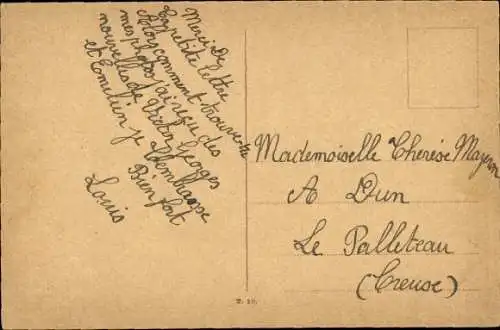 Merci De
Ta petite lettre
Alors comment trouve tu
mes photos j'ai reçu des
nouvelles de Victor Georges
et Emilien je t'embrasse
Bien fort
Louis
Mademoiselle Thérèse Mazeron
A Dun
Le Palleteau
(Creuse)